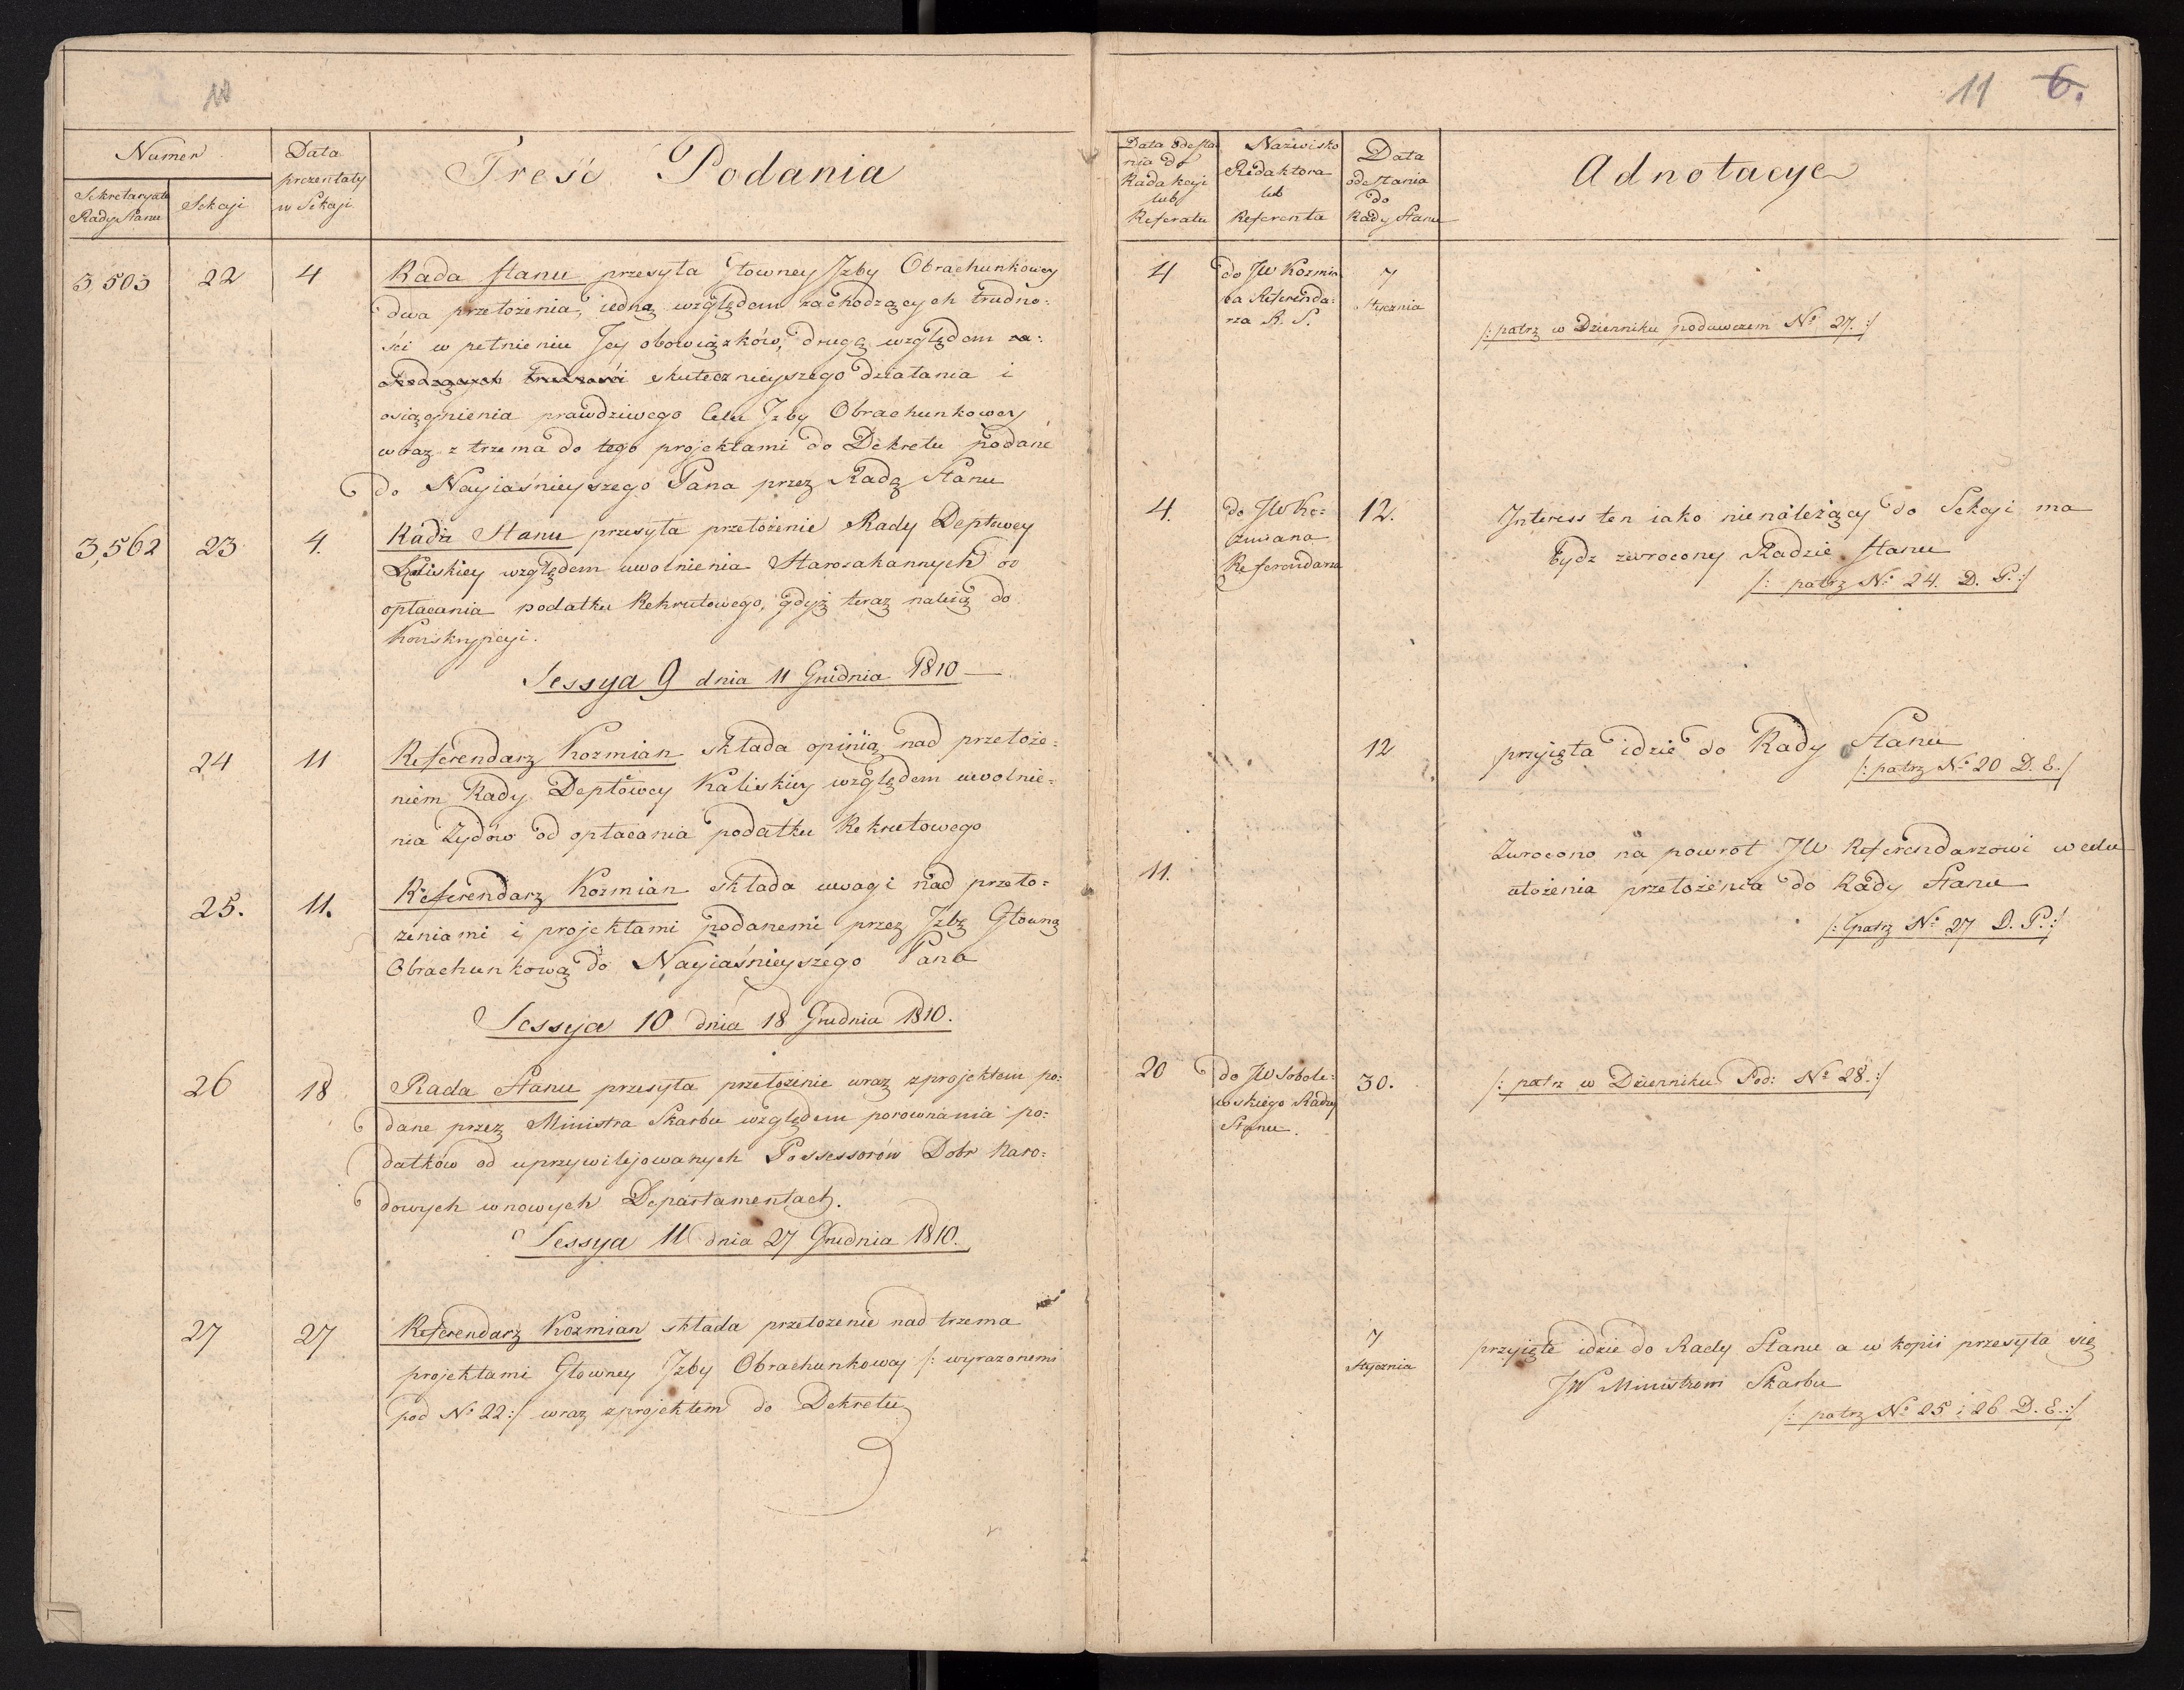 10
Numer
Data
prezentaty
w Sekcji
Treść Podania
Sekretaryatu
Rady Stanu
Sekcji
3,503 22 4 Rada Stanu przesyła Głowney Izby Obrachunkowey
dwa przełożenia, iedną względem zachodzących trudno:
ści w pełnieniu Jey obowiązków, drugą względem za:
chodzących trudności skutecznieyszego działania i
osiągnienia prawdziwego Celu Izby Obrachunkowey
wraz z trzema do tego projektami do Dekretu podane
do Nayiaśnieyszego Pana przez Radę Stanu
3,562 23 4. Rada Stanu przesyła przełożenie Rady Deptowey
Kaliskiey względem uwolnienia Starozakonnych od
opłacania podatku Rekrutowego, gdyż teraz należą do
Konskrypcyi.
Sessya 9 dnia 11 Grudnia 1810
24 11 Referendarz Kozmian składa opinią nad przełoże=
niem Rady Deptowey Kaliskiey względem uwolnie=
nia Żydów od opłacania podatku Rekrutowego
25. 11. Referendarz Kozmian składa uwagi nad przeło=
żeniami i projektami podanemi przez Izbę Głowną
Obrachunkową do Nayiaśnieyszego Pana
Sessya 10 dnia 18 Grudnia 1810.
26 18 Rada Stanu przesyła przełożenie wraz z projektem po:
dane przez Ministra Skarbu względem porownania po:
datków od uprzywilejowanych Possessorów Dobr Naro:
dowych w nowych Departamentach.
Sessya 11 dnia 27 Grudnia 1810.
27 27 Referendarz Kozmian składa przełozenie nad trzema
projektami Głowney Izby Obrachunkowey /: wyrazonemi
pod Nº 22:/ wraz z projektem do Dekretu
11 6.
Data odesła
nia do
Redakcyi
lub
Referatu
Nazwisko
Redaktora
lub
Referenta
Data
odesłania
do
Rady Stanu
Adnotacye
4 do JW Kozmia
na Referenda:
rza R. S.
7
Stycznia
/: patrz w Dzienniku podawczem Nº 27. :/
4. do JW Ko:
zmiana
Referendarza
12. Interess ten iako nienależący do Sekcji ma
bydz zwrocony Radzie Stanu
/: patrz Nº 24. D. P. :/
12 przyięta idzie do Rady Stanu
/: patrz Nº 20 D. E. /
11. Zwrocono na powrot JW Referendarzowi w celu
ułożenia przełożenia do Rady Stanu
/: patrz Nº 27 D. P. :/
20 do JW Sobole:
wskiego Radcy
Stanu.
30. /: patrz w Dzienniku Pod: Nº 28. :/
7
Stycznia
przyięte idzie do Rady Stanu a w kopii przesyła się
JW Ministrowi Skarbu
/: patrz Nº 25 i 26 D. E. :/